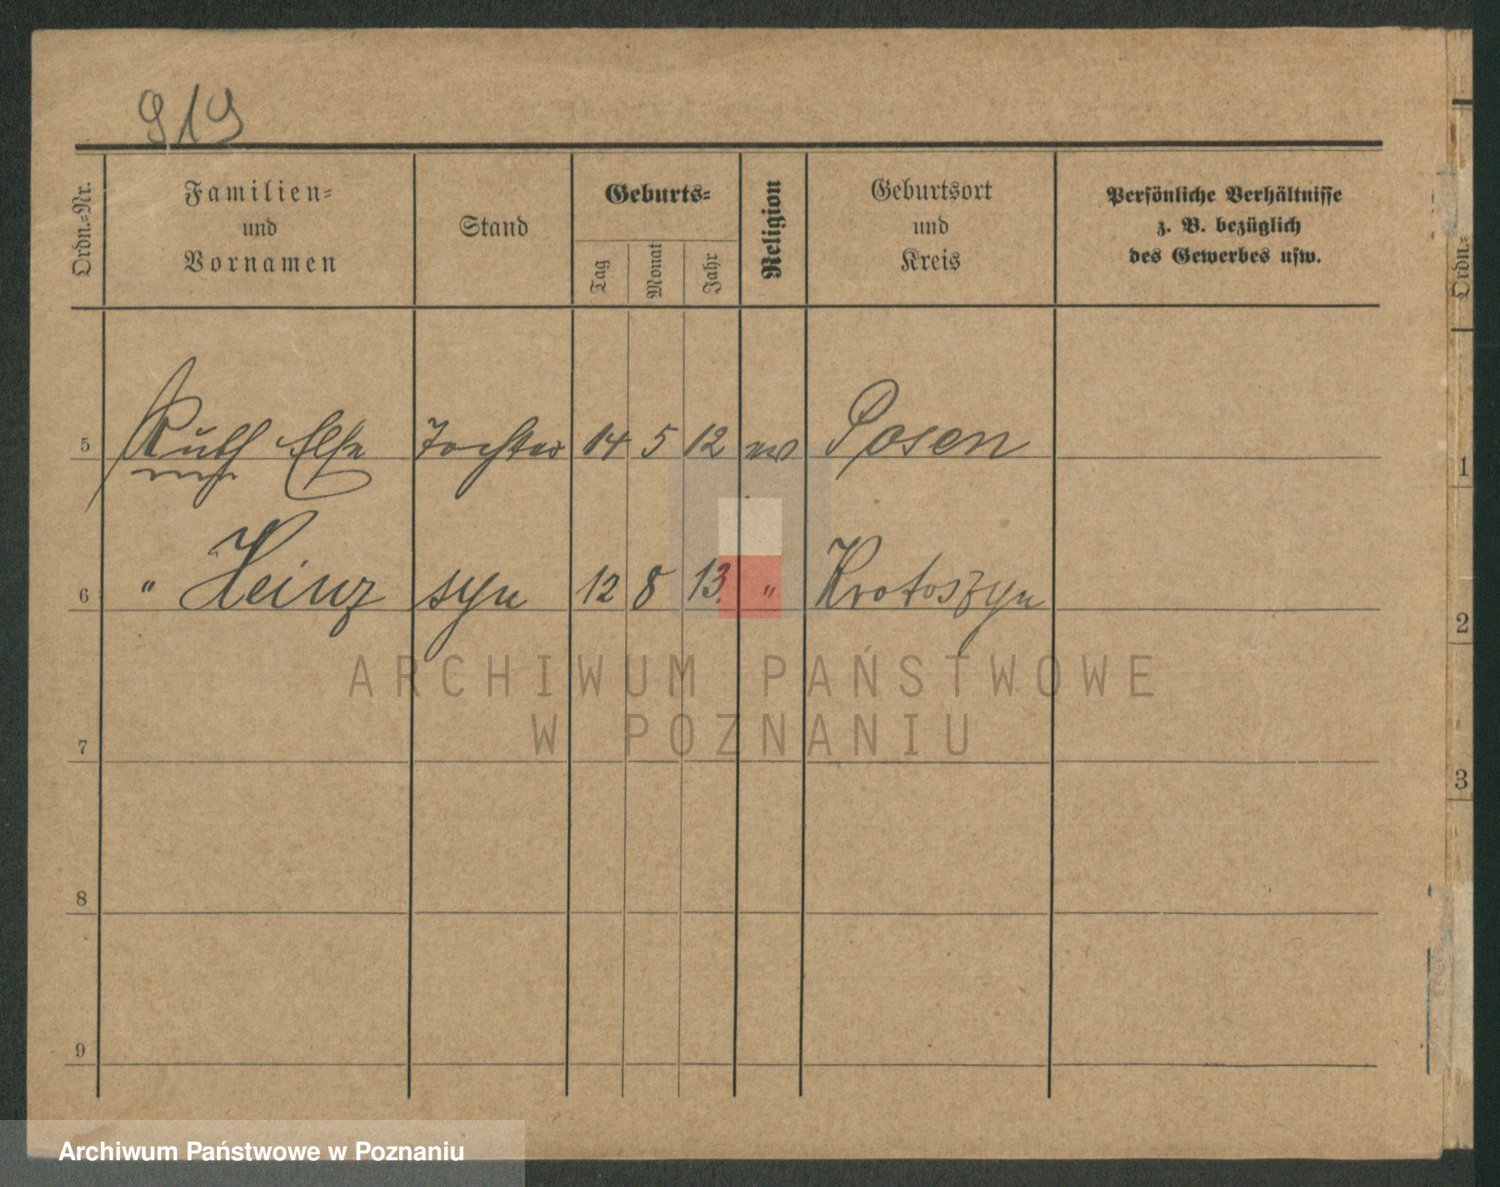 919
Ordn.=Nr.
Familien=
und
Vornamen
Stand
Geburts=
Tag
Monat
Jahr
Religion
Geburtsort
und
Kreis
Persönliche Verhältnisse
z. B. bezüglich
des Gewerbes usw.
Ordn.=
5 Ruth Else Tochter 14 5 12 Posen
6 " Heinz syn 12 8 13. " Krotoszyn
7
8
9
1
2
3
ARCHIWUM PAŃSTWOWE
W POZNANIU
Archiwum Państwowe w Poznaniu